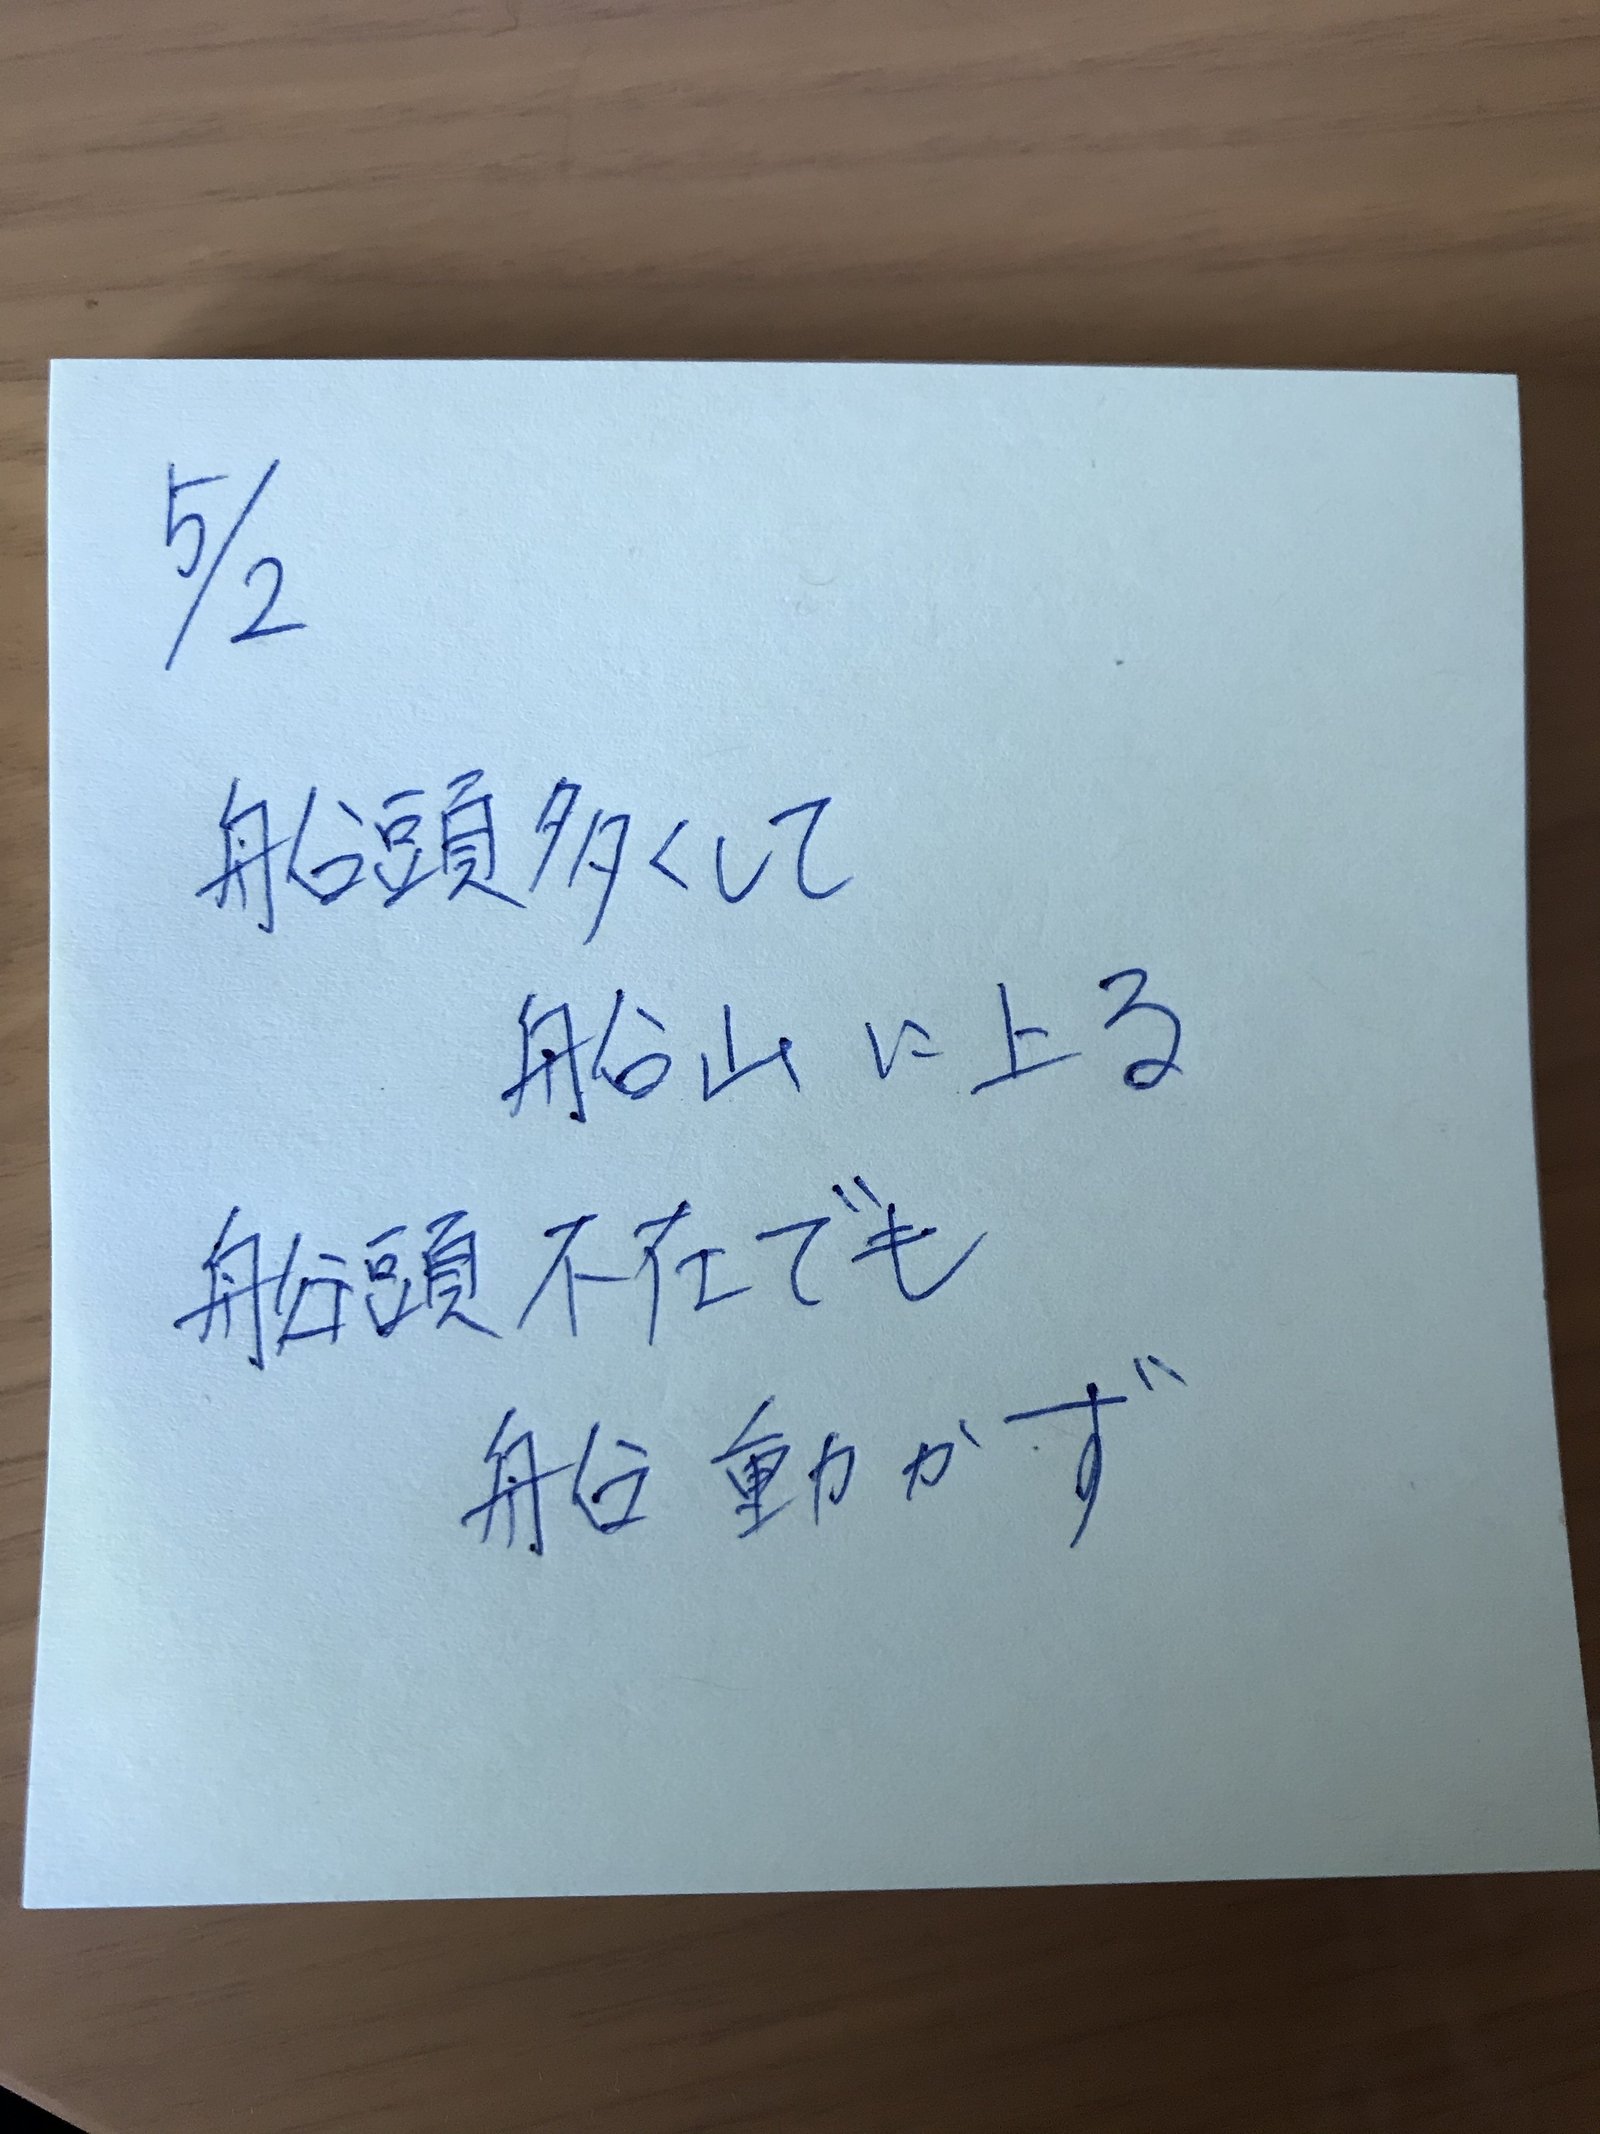 5/2
船頭多くして
船山に上る
船頭不在でも
船動かず